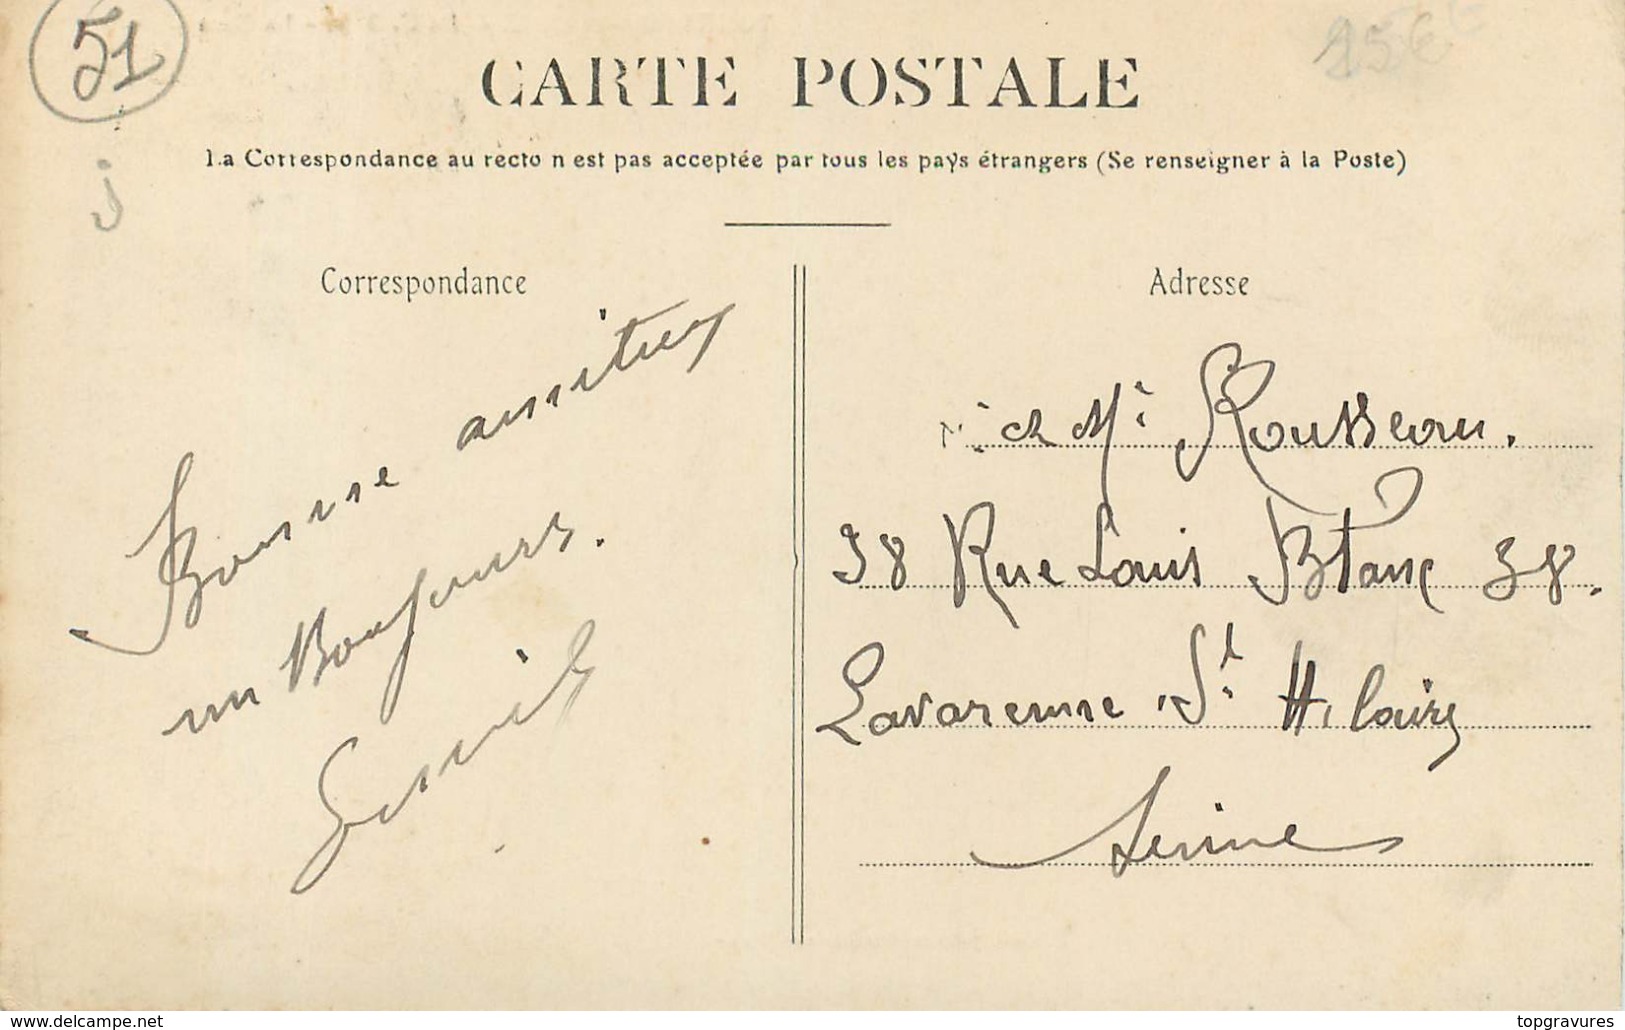 51
CARTE POSTALE
La Correspondance au recto n'est pas acceptée par tous les pays étrangers (Se renseigner à la Poste)
j
Correspondance
Bonne amitiés
un Bonjours.
Adresse
Mr Rousseau.
38 Rue Louis Blanc 38.
Lavarenne St Hilaire
Seine
www.delcampe.net
topgravures